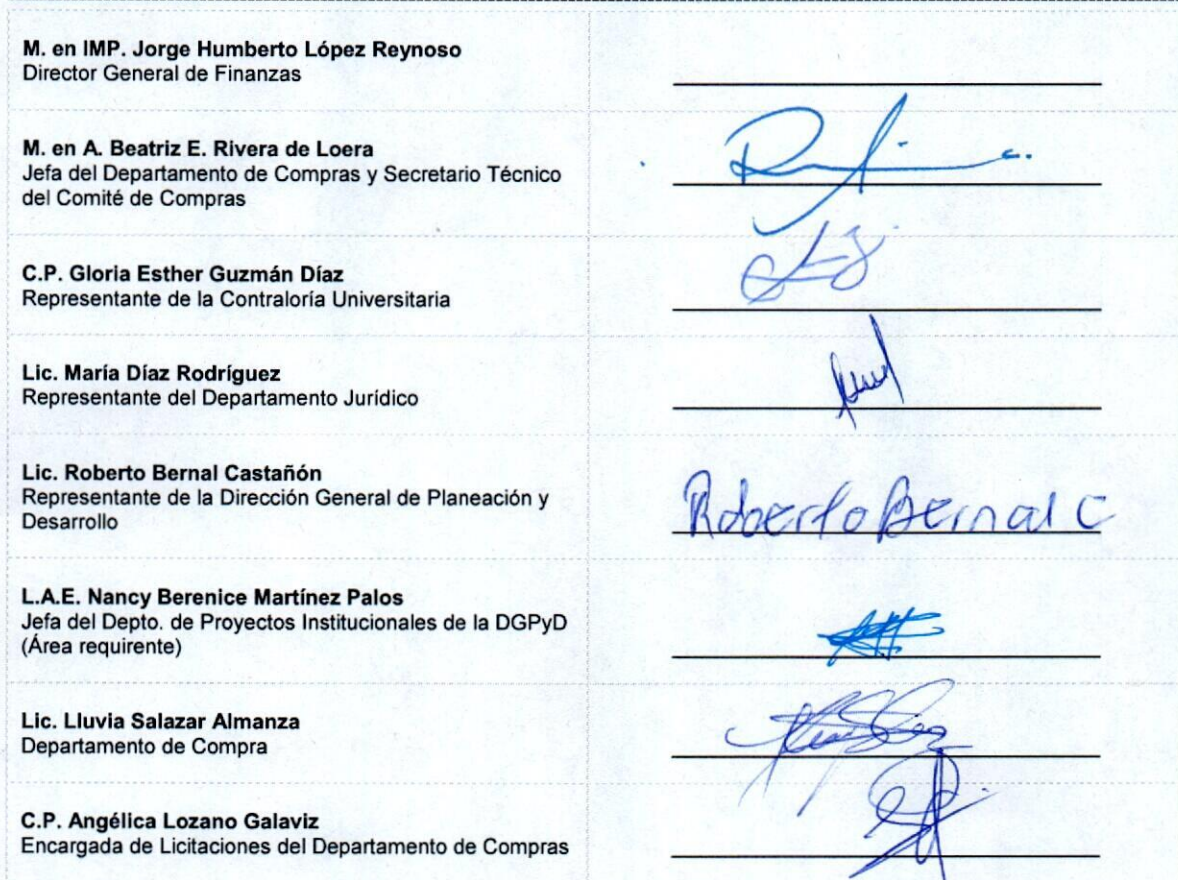 M. en IMP. Jorge Humberto López Reynoso
Director General de Finanzas
M. en A. Beatriz E. Rivera de Loera
Jefa del Departamento de Compras y Secretario Técnico
del Comité de Compras
C.P. Gloria Esther Guzmán Díaz
Representante de la Contraloría Universitaria
Lic. María Díaz Rodríguez
Representante del Departamento Jurídico
Lic. Roberto Bernal Castañón
Representante de la Dirección General de Planeación y
Desarrollo
Roberto Bernal C
L.A.E. Nancy Berenice Martínez Palos
Jefa del Depto. de Proyectos Institucionales de la DGPyD
(Área requirente)
Lic. Lluvia Salazar Almanza
Departamento de Compra
C.P. Angélica Lozano Galaviz
Encargada de Licitaciones del Departamento de Compras